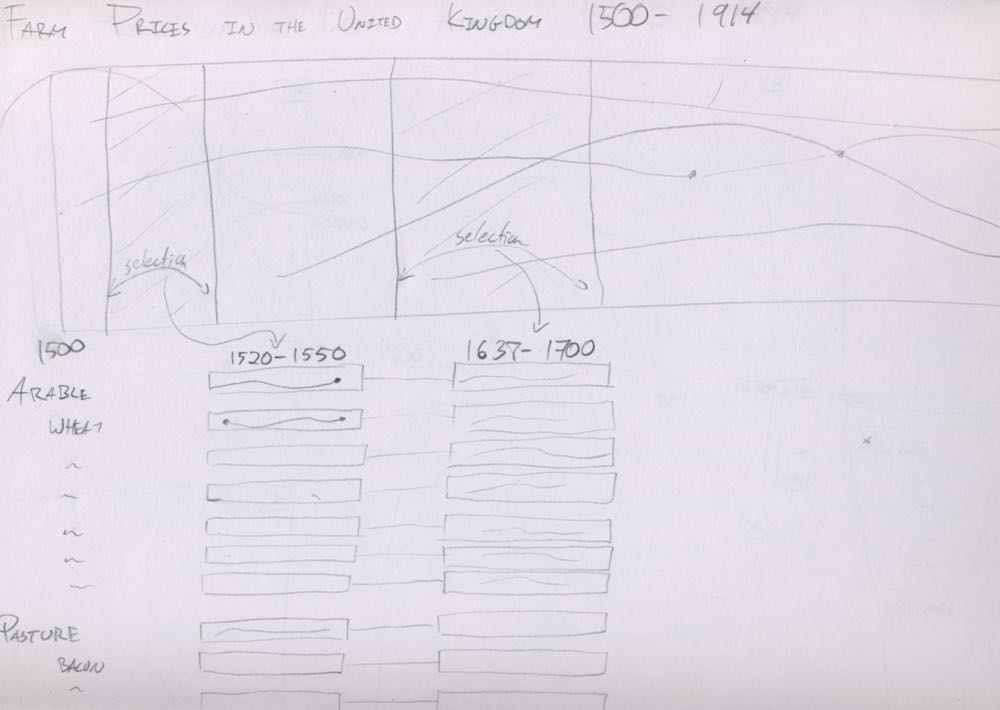 FARM PRICES IN THE UNITED KINGDOM 1500-1914
selection
selection
1500
1520-1550
1637-1700
ARABLE
WHEAT
PASTURE
BACON